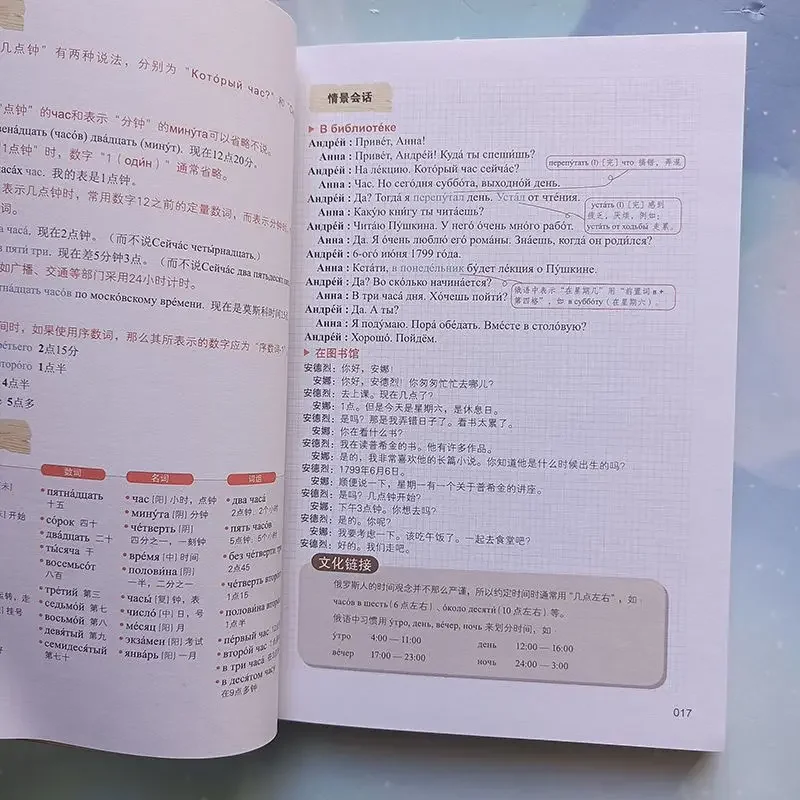 几点钟”有两种说法，分别为“Кото́рый час?”和
“点钟”的час和表示“分钟”的мину́та可以省略不说。
двена́дцать (часо́в) два́дцать (мину́т). 现在12点20分。
“1点钟”时，数字“1 (оди́н)”通常省略。
часа́х час. 我的表是1点钟。
表示几点钟时，常用数字12之前的定量数词，而表示分钟时
词。
часа́. 现在2点钟。（而不说Сейча́с четы́рнадцать.）
пяти́ три. 现在差5分钟3点。（而不说Сейча́с два пятьдеся́т
如广播、交通等部门采用24小时计时。
часо́в по моско́вскому вре́мени. 现在是莫斯科时间
间时，如果使用序数词，那么其所表示的数字应为“序数词-1”
тре́тьего 2点15分
второ́го 1点半
4点半
5点多
数词 名词 词语
пятна́дцать 十五
со́рок 四十
два́дцать 二十
ты́сяча 千
восемьсо́т 八百
тре́тий 第三
седьмо́й 第七
восьмо́й 第八
девя́тый 第九
семидеся́тый 第七十
час [阳] 小时，点钟
мину́та [阴] 分钟
че́тверть [阴] 四分之一，一刻钟
вре́мя [中] 时间
полови́на [阴] 一半，二分之一
часы́ [复] 钟，表
число́ [中] 日，号
ме́сяц [阳] 月
экза́мен [阳] 考试
янва́рь [阳] 一月
два часа́ 2点钟，2个小时
пять часо́в 5点钟，5个小时
без че́тверти три 2点45
че́тверть второ́го 1点15
полови́на второ́го 1点半
пе́рвый час
второ́й час
в три часа́
в деся́том часу́ 在9点多钟
情景会话
В библиоте́ке
Андре́й : Приве́т, А́нна!
А́нна : Приве́т, Андре́й! Куда́ ты спеши́шь?
Андре́й : На ле́кцию. Кото́рый час сейча́с?
А́нна : Час. Но сего́дня суббо́та, выходно́й день.
Андре́й : Да? Тогда́ я перепу́тал день. Уста́л от чте́ния.
А́нна : Каку́ю кни́гу ты чита́ешь?
Андре́й : Чита́ю Пу́шкина. У него́ о́чень мно́го рабо́т.
А́нна : Да. Я о́чень люблю́ его́ рома́ны. Зна́ешь, когда́ он роди́лся?
Андре́й : 6-ого ию́ня 1799 го́да.
А́нна : Кста́ти, в понеде́льник бу́дет ле́кция о Пу́шкине.
Андре́й : Да? Во ско́лько начина́ется?
А́нна : В три часа́ дня. Хо́чешь пойти́?
Андре́й : Да. А ты?
А́нна : Я поду́маю. Пора́ обе́дать. Вме́сте в столо́вую?
Андре́й : Хорошо́. Пойдём.
перепу́тать (I) [完] что 搞错，弄混
уста́ть (I) [完] 感到
疲乏，厌烦，例如：
уста́ть от ходьбы́ 走累。
俄语中表示“在星期几”用“前置词 в +
第四格”，如 в суббо́ту (在星期六)。
在图书馆
安德烈：你好，安娜！
安娜：你好，安德烈！你匆匆忙忙去哪儿？
安德烈：去上课。现在几点了？
安娜：1点。但是今天是星期六，是休息日。
安德烈：是吗？那是我弄错日子了。看书太累了。
安娜：你在看什么书？
安德烈：我在读普希金的书。他有许多作品。
安娜：是的，我非常喜欢他的长篇小说。你知道他是什么时候出生的吗？
安德烈：1799年6月6日。
安娜：顺便说一下，星期一有一个关于普希金的讲座。
安德烈：是吗？几点钟开始？
安娜：下午3点钟。你想去吗？
安德烈：是的。你呢？
安娜：我要考虑一下。该吃午饭了。一起去食堂吧？
安德烈：好的。我们走吧。
文化链接
俄罗斯人的时间观念并不那么严谨，所以约定时间时通常用“几点左右”，如
часо́в в шесть (6点左右)，о́коло десяти́ (10点左右) 等。
俄语中习惯用 у́тро, день, ве́чер, ночь 来划分时间，如
у́тро 4:00 — 11:00 день 12:00 — 16:00
ве́чер 17:00 — 23:00 ночь 24:00 — 3:00
017